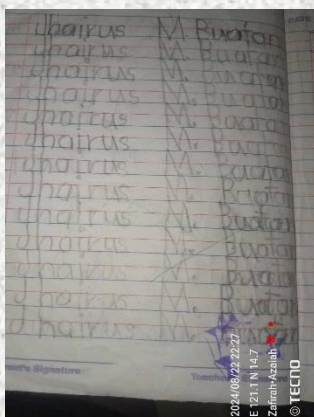 DATE
Jhairus M. Buatan
Jhairus M. Buatan
Jhairus M. Buatan
Jhairus M. Buatan
Jhairus M. Buatan
Jhairus M. Buatan
Jhairus M. Buatan
Jhairus M. Buatan
Jhairus M. Buatan
Jhairus M. Buatan
Jhairus M. Buatan
Jhairus M. Buatan
Jhairus M. Buatan
Signature
2024/08/22 22:27
E 121.1 N 14.7
Zafirah•Azaiah
© TECNO